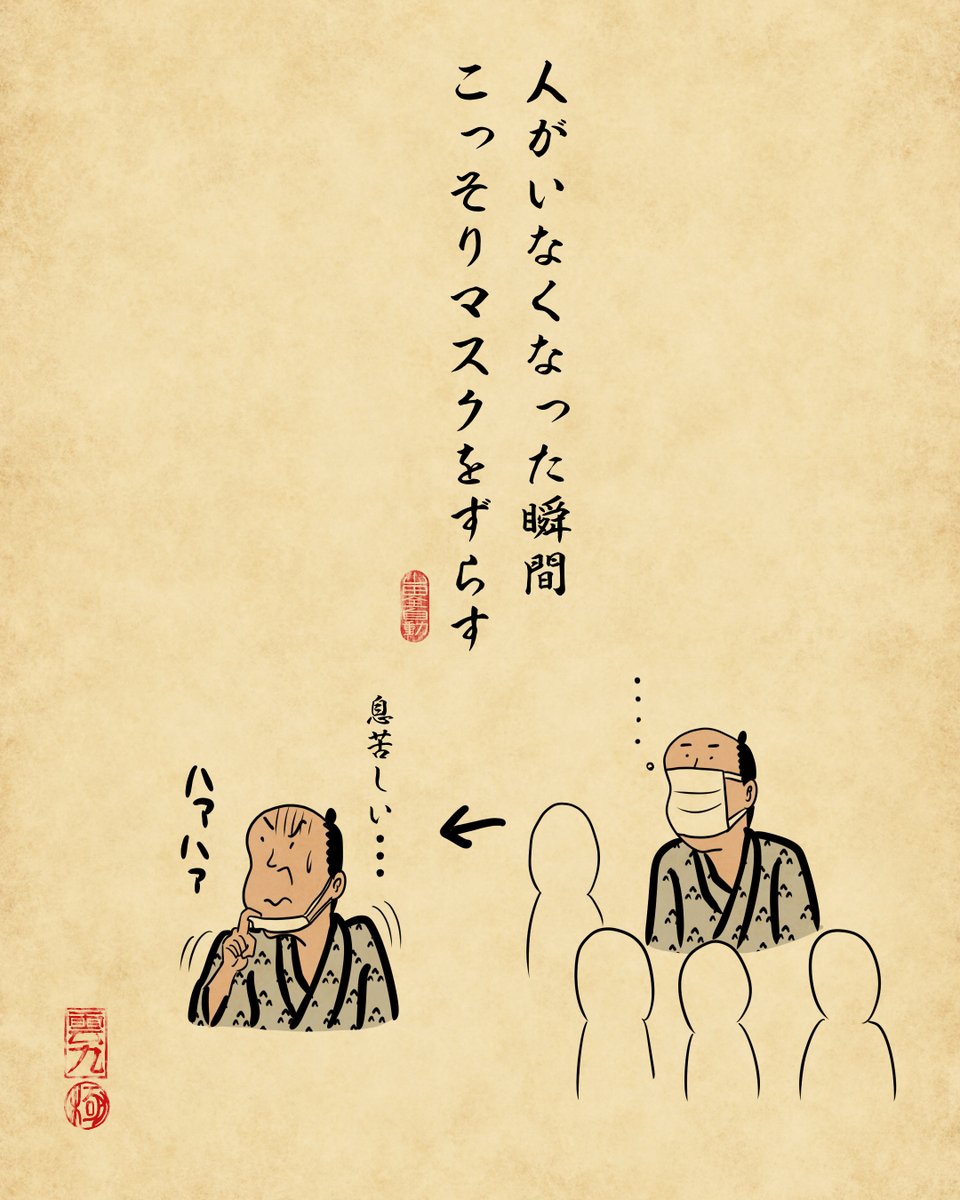 人がいなくなった瞬間
こっそりマスクをずらす
・・・・
息苦しい・・・
ハァハァ